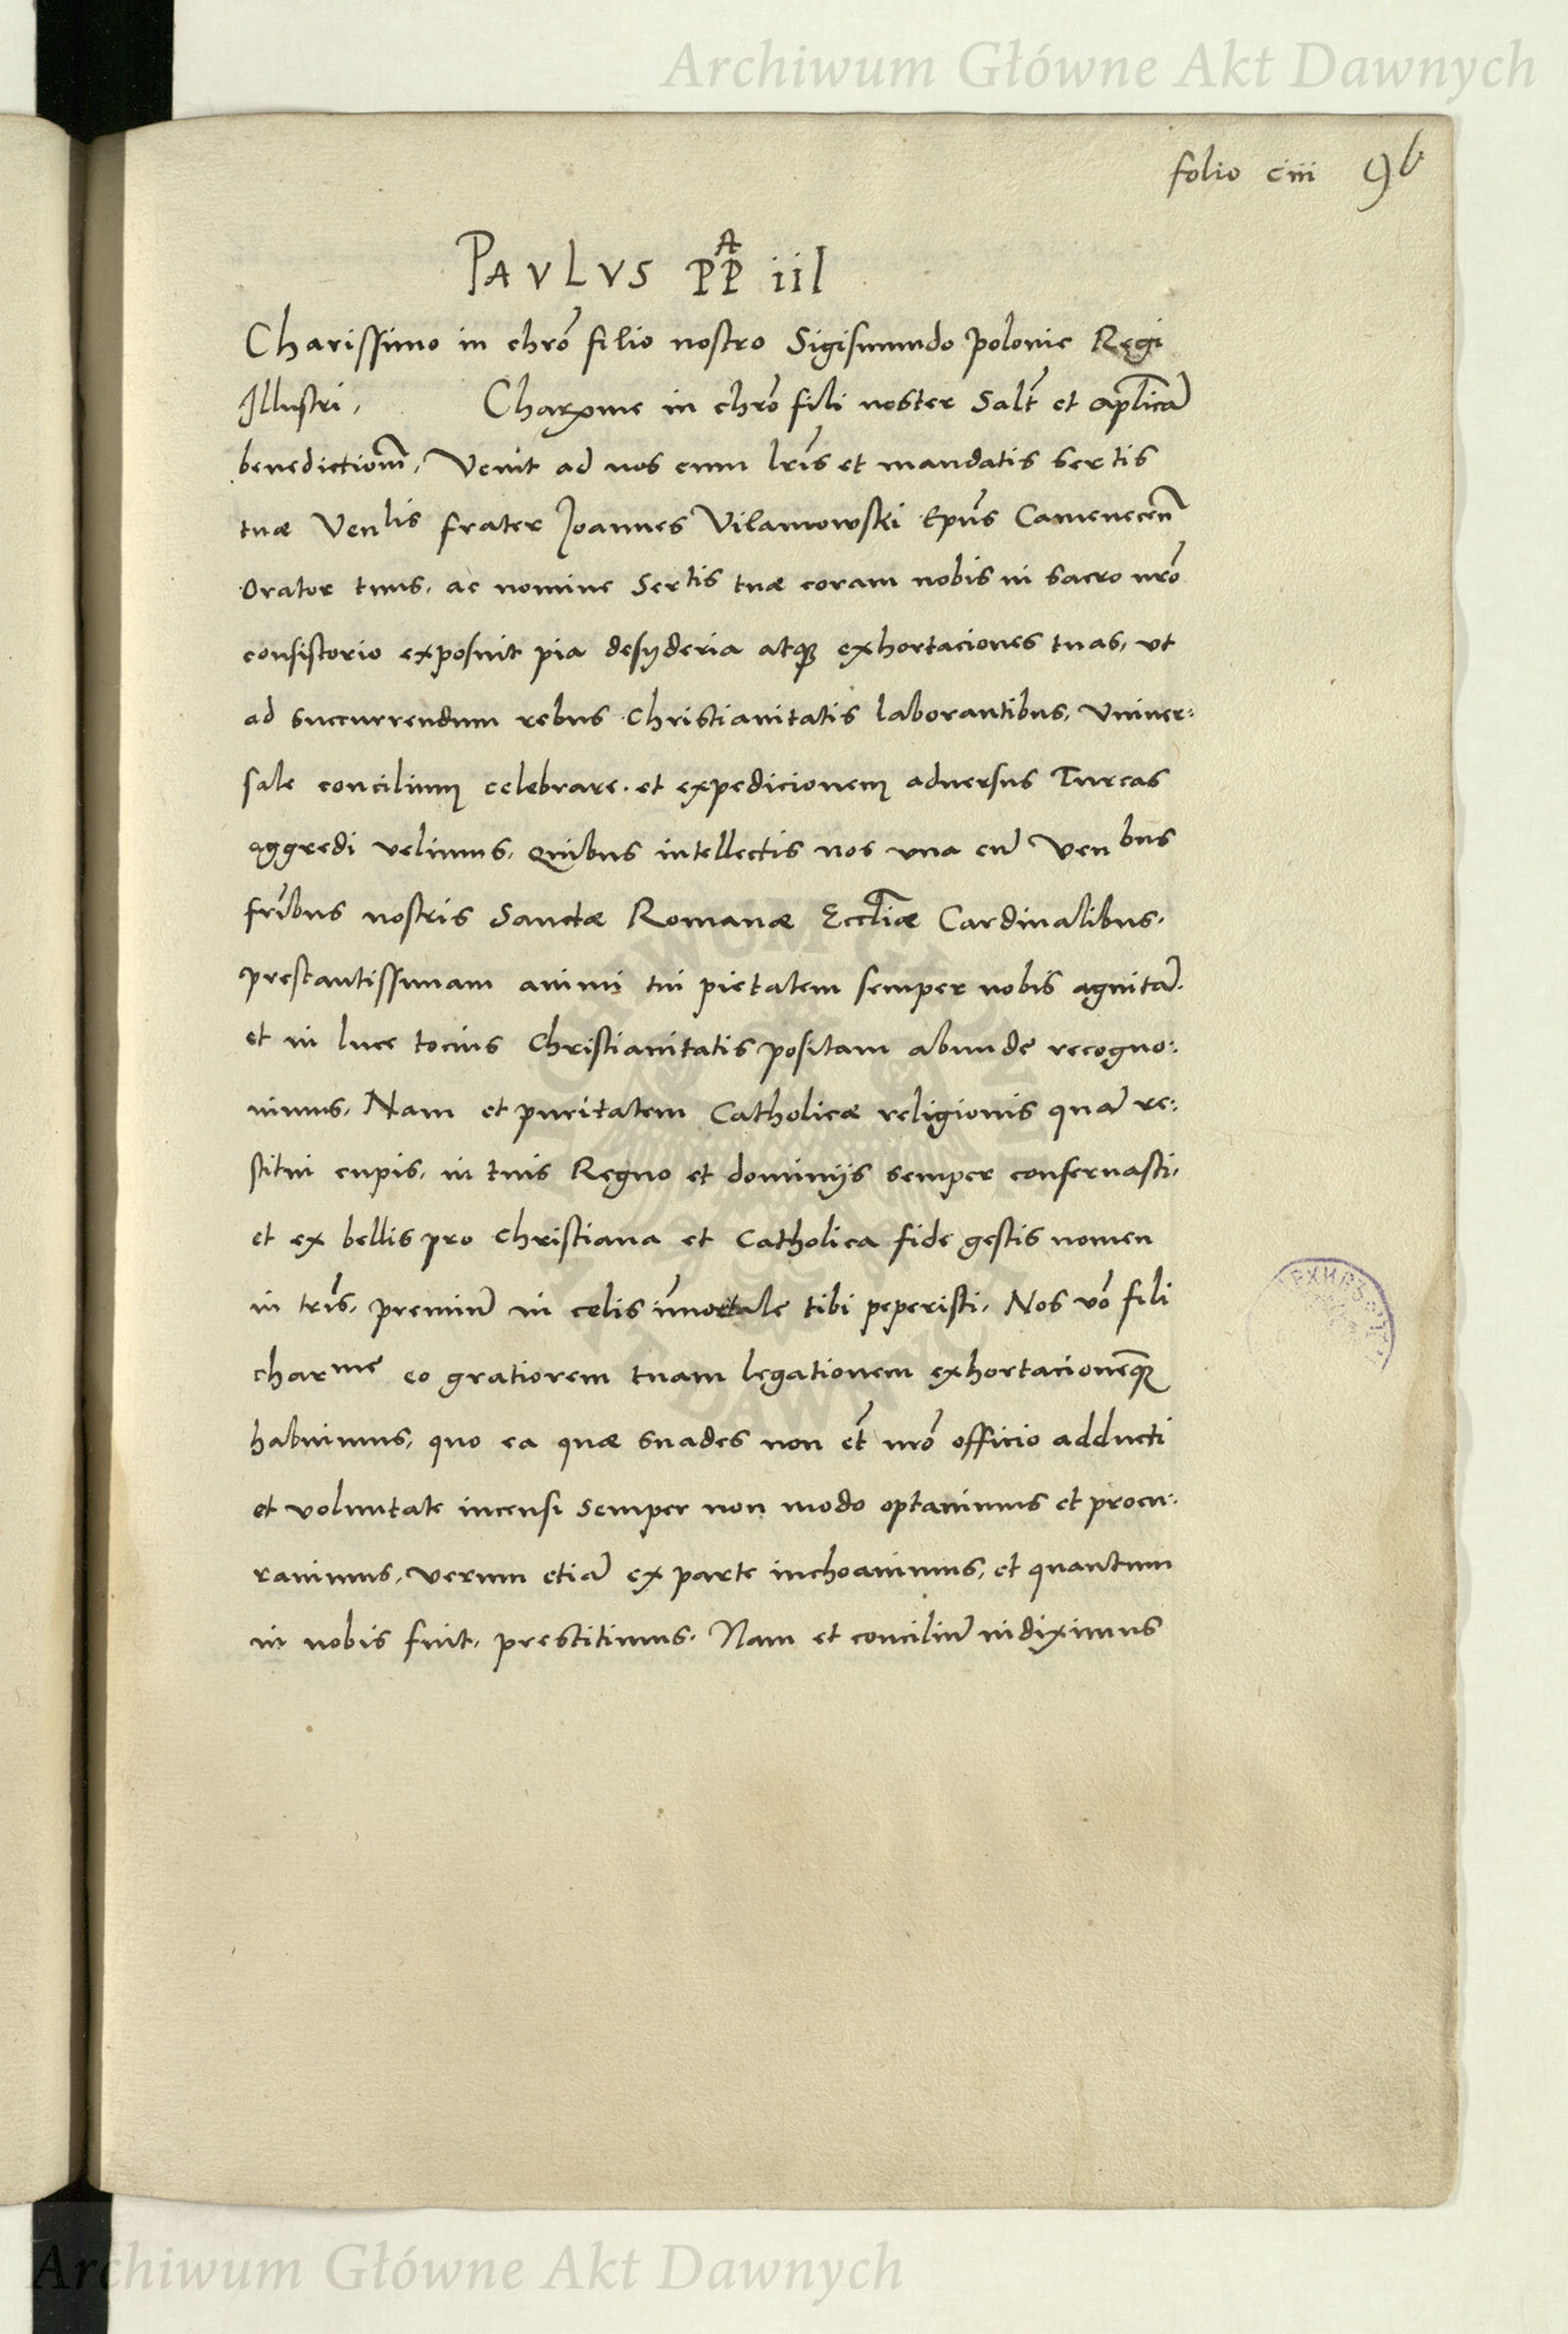 Archiwum Główne Akt Dawnych
folio ciii 9b
PAVLVS PP^A iii
Charissimo in chrō filio nostro Sigismundo Polonie Regi
Illustri, Charxme in chrō fili noster Salt̄ et aplicā
benedictionē, Venit ad nos cum lrīs et mandatis sertis
tuæ Venlis frater Joannes Vilamowski Epūs Camenecēn
Orator tuus, ac nomine Sertis tuæ coram nobis in sacro nrō
consistorio exposuit pia desyderia atq; exhortaciones tuas, ut
ad succurrendum rebus Christianitatis laborantibus, Vniuer:
sale concilium celebrare. et expedicionem aduersus Turcas
aggredi velimus, Quibus intellectis nos vna cū Venbus
frībus nostris Sanctæ Romanæ Eccliæ Cardinalibus,
prestantissimam animi tui pietatem semper nobis agnitā.
et in luce tocius Christianitatis positam abunde recogno:
uimus, Nam et puritatem Catholicæ religionis quā re:
stitui cupis, in tuis Regno et dominijs semper conseruasti,
et ex bellis pro Christiana et Catholica fide gestis nomen
in trīs, premiū in celis īmortale tibi peperisti, Nos vō fili
charme eo gratiorem tuam legationem exhortacionēq;
habuimus, quo ea quæ suades non et̄ nrō officio adducti
et voluntate incensi semper non modo optauimus et procu:
rauimus, verum etiā ex parte inchoauimus, et quantum
in nobis fuit, prestitimus. Nam et conciliū indiximus
Archiwum Główne Akt Dawnych